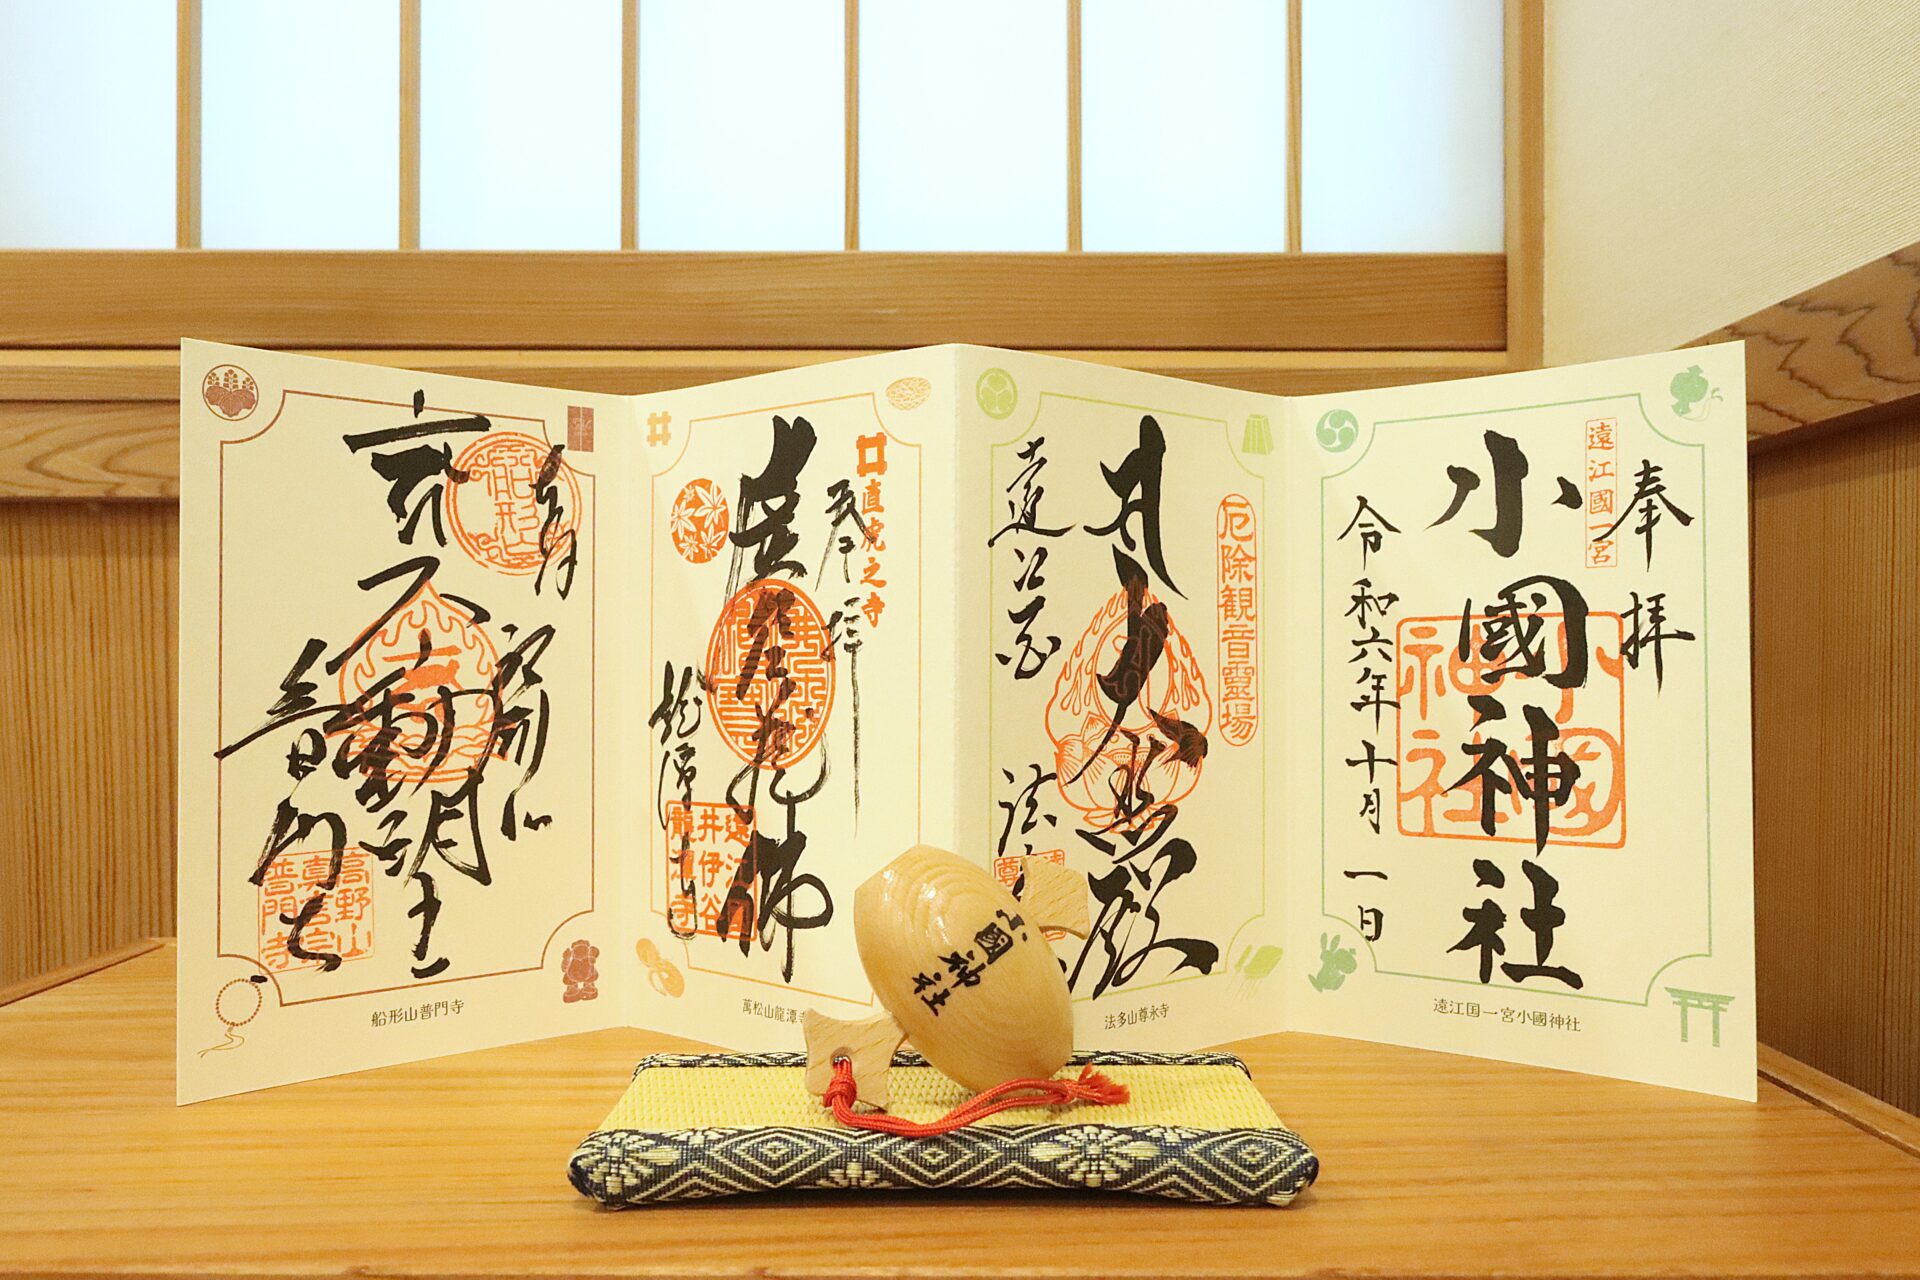 奉拝
遠江國一宮
小國神社
小國神社
令和六年十月一日
遠江国一宮小國神社
厄除観音霊場
大悲殿
遠江
法
法多山尊永寺
直虎之寺
拝
佛
遠江
井伊谷
龍潭寺
萬松山龍潭寺
船形山
不動明王
普門寺
高野山
真言宗
普門寺
船形山普門寺
小國神社